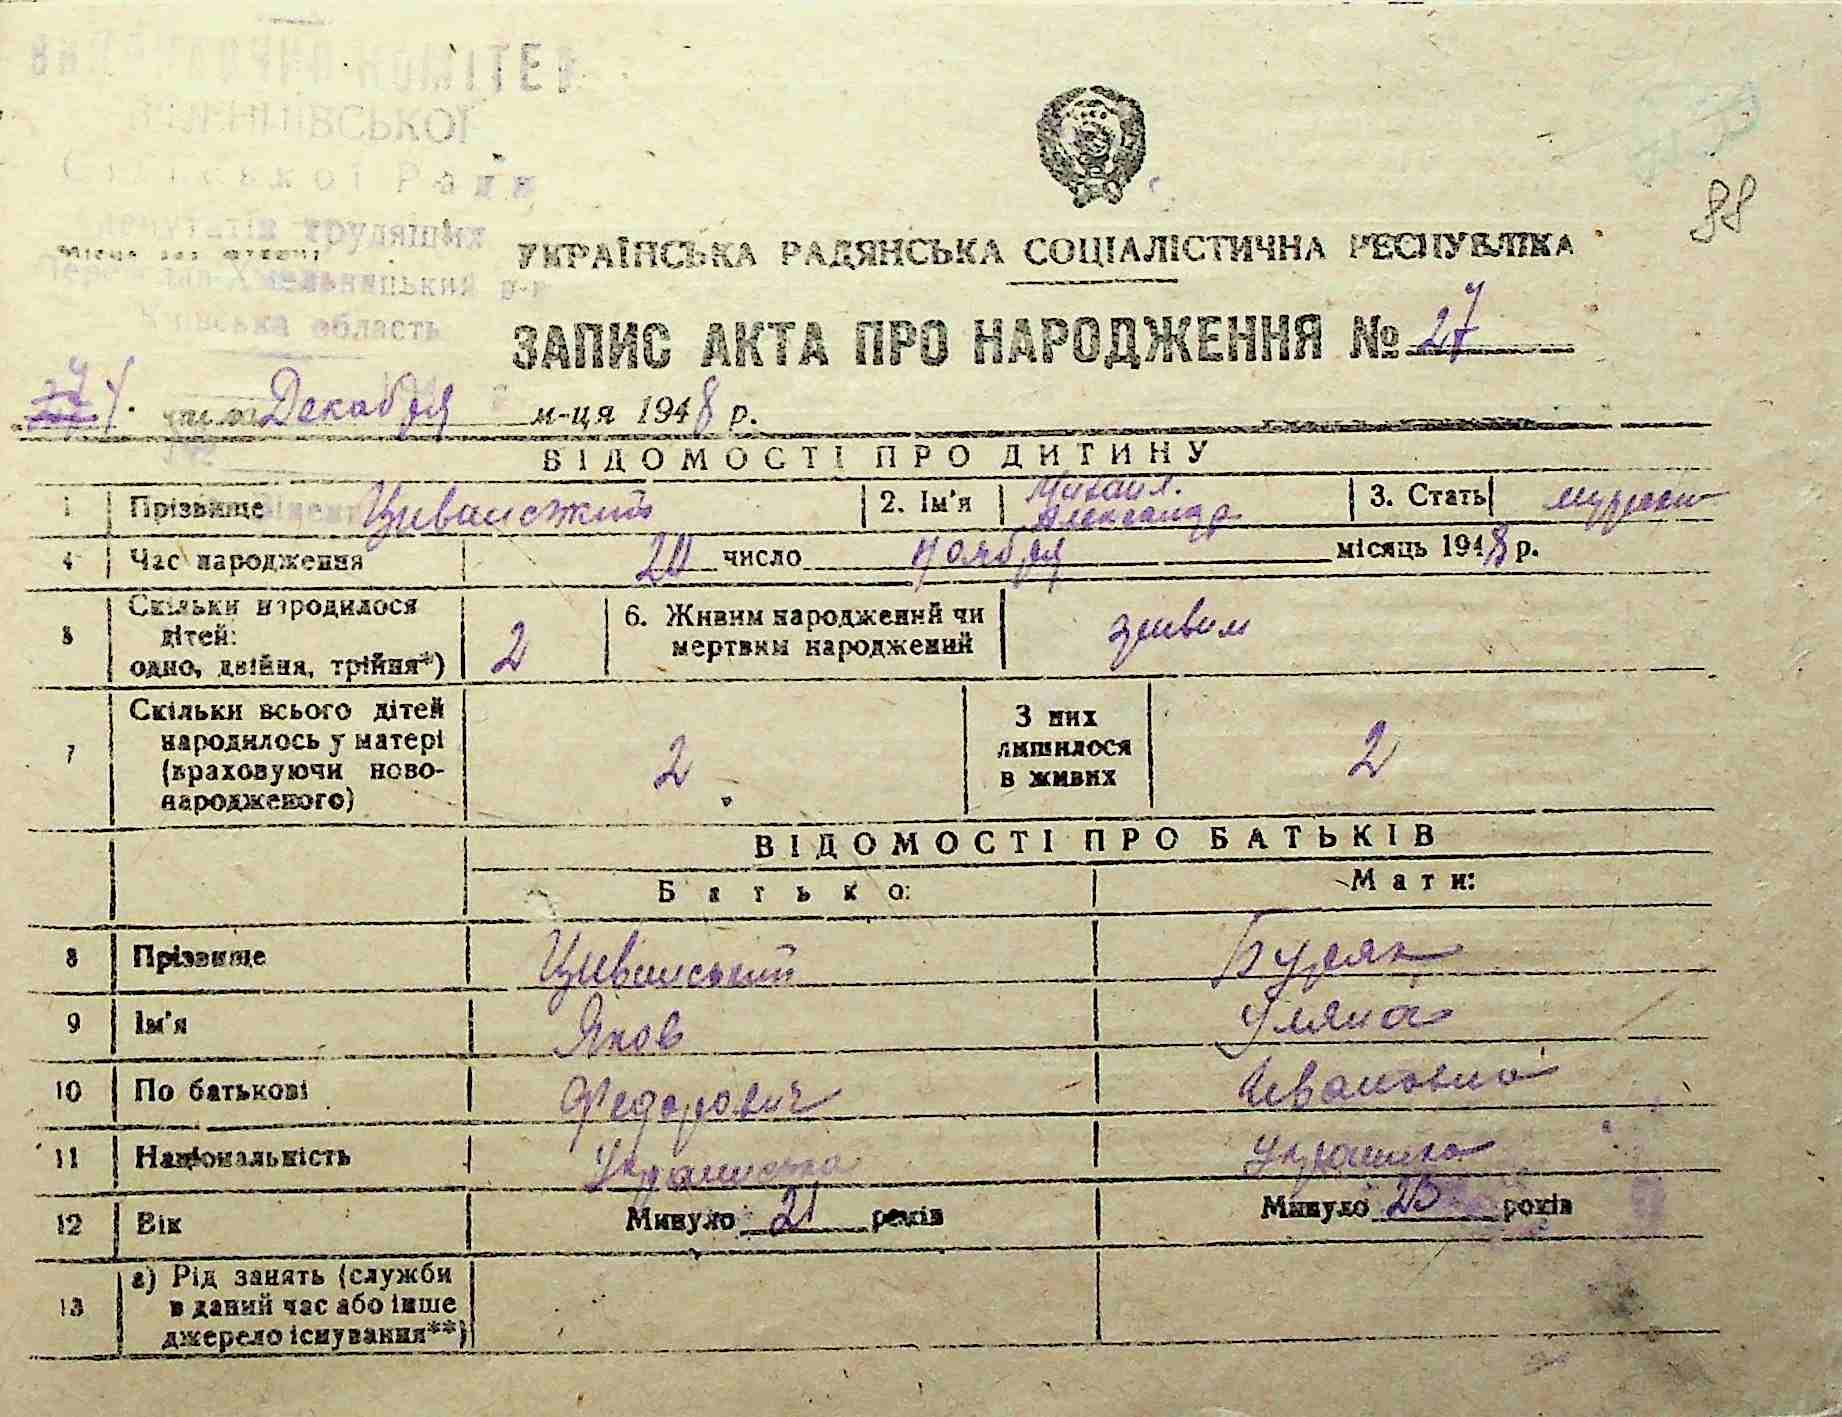 КОМІТЕТ
Ради
депутатів трудящих
Місце для штампу
Переяслав-Хмельницький р-н
Київська область
88
УКРАЇНСЬКА РАДЯНСЬКА СОЦІАЛІСТИЧНА РЕСПУБЛІКА
ЗАПИС АКТА ПРО НАРОДЖЕННЯ № 27
числа Декабря м-ця 1948 р.
ВІДОМОСТІ ПРО ДИТИНУ
1 Прізвище 2. Ім'я Михаил. Александр 3. Стать мужски
4 Час народження 20 число ноября місяць 1948 р.
5 Скільки народилося
дітей:
одно, двійня, трійня*) 2 6. Живим народжений чи
мертвим народжений живим
7 Скільки всього дітей
народилось у матері
(враховуючи ново-
народженого) 2 З них
лишилося
в живих 2
ВІДОМОСТІ ПРО БАТЬКІВ
Батько: Мати:
8 Прізвище Циванський Буряк
9 Ім'я Яков Уляна
10 По батькові Федорович Ивановна
11 Національність Украинська Украинка
12 Вік Минуло 21 років Минуло 23 років
13 а) Рід занять (служби
в даний час або інше
джерело існування**)